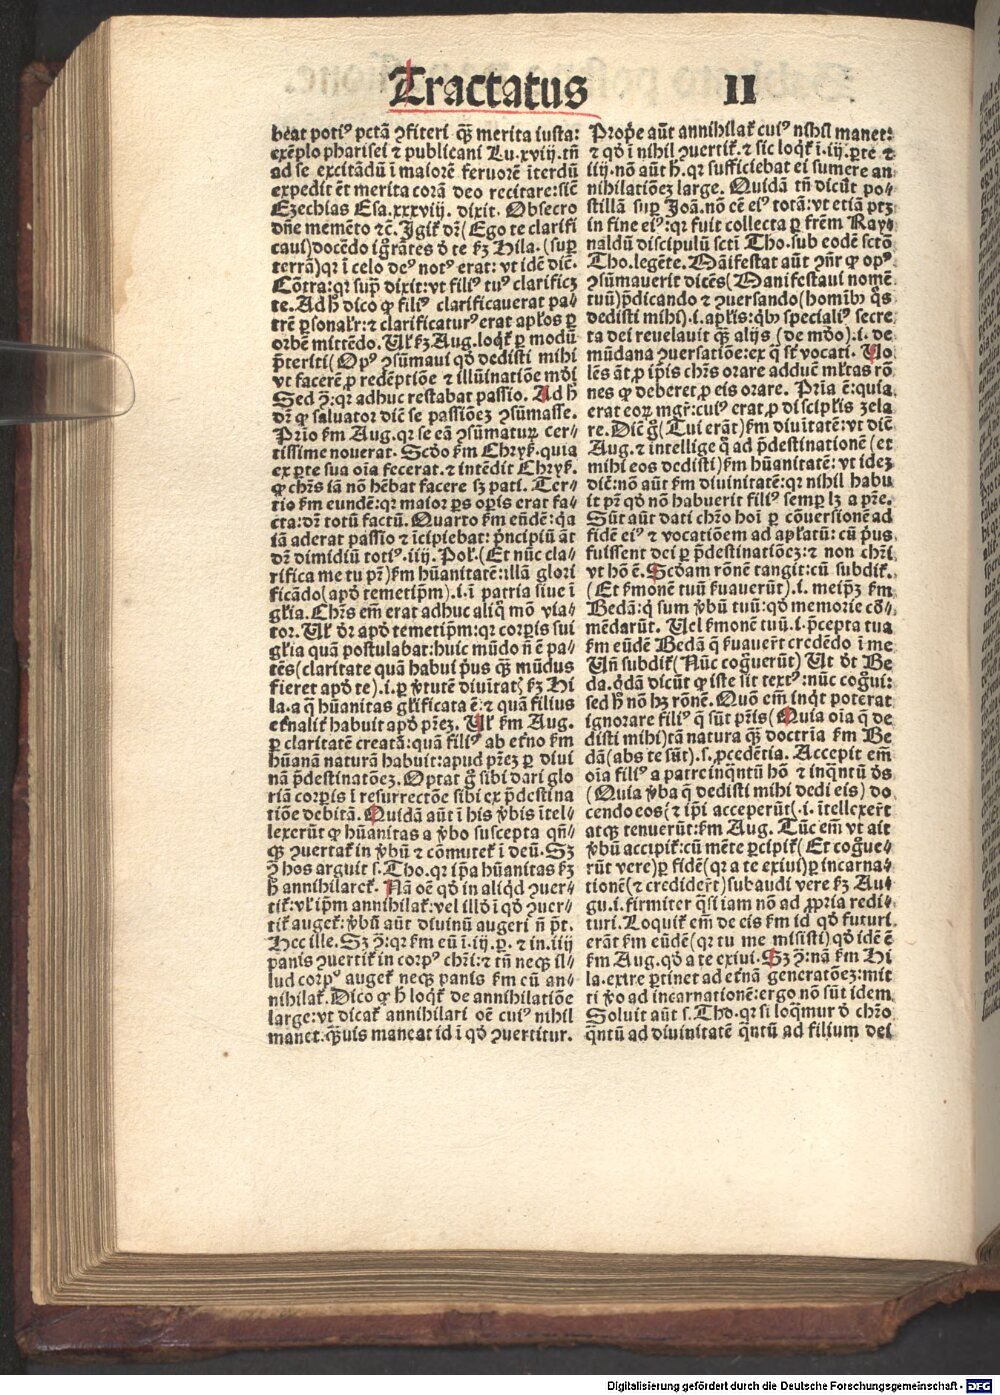 Tractatus II
beat potiꝰ pctā ꝯfiteri qᷓꝫ merita iusta:
exēplo pharisei ⁊ publicani Lu.xviij. tñ
ad se excitādū ī maiorē feruorē īterdū
expedit ēt merita corā deo recitare: sicſ
Ezechias Esa.xxxviij. dixit. Obsecro
dñe memēto ⁊c. Igiť dꝛ (Ego te clarifi
caui) docēdo igrātes ð te ẜꝫ Hila. (suꝑ
terrā) qꝛ ī celo deꝰ notꝰ erat: vt idē dič.
Cōtra: qꝛ supͣ dixit: vt filiꝰ tuꝰ clarificꝫ
te. Ad ħ dico ꝙ filiꝰ clarificauerat pa-
trē ꝑsonalr̄: ⁊ clarificaturꝰ erat apľos ꝑ
orbē mittēdo. Uľ ẜꝫ Aug. loqť ꝑ modū
p̄teriti (Opꝰ ꝯsūmaui qð dedisti mihi
vt facerē ꝓ redēptiōe ⁊ illūinatiōe mūdi
Sed ꝯ: qꝛ adhuc restabat passio. Ad ħ
dꝛ ꝙ saluator dič se passiōeꝫ ꝯsūmasse.
Prīo ẜm Aug. qꝛ se eā ꝯsūmatuꝝ cer-
tissime nouerat. Scðo ẜm Chryẜ. quia
ex ꝑte sua oīa fecerat. ⁊ intēdit Chryẜ.
ꝙ chr̄s iā nō hēbat facere sꝫ pati. Ter-
tio ẜm eundē: qꝛ maior ꝑs opis erat fa-
cta: dꝛ totū factū. Quarto ẜm eūdē: qꝛ
iā aderat passio ⁊ īcipiebat: pͥncipiū āt
dꝛ dimidiū totiꝰ. iiij. Poľ. (Et nūc cla-
rifica me tu pr̄) ẜm hūanitatē: illā glori
ficādo (apð temetipm̄). i. ī patria siue ī
gľia. Chr̄s em̄ erat adhuc aliq̄ mō via-
tor. Uľ dꝛ apð temetip̄m: qꝛ corꝑis sui
gľia quā postulabat: huic mūdo ñ ē pa-
tēs (claritate quā habui pͥus qᷓꝫ mūdus
fieret apð te). i. ꝑ v̓tutē diuitatꝭ ẜꝫ Hi
la. a qͣ hūanitas gľificata ē: ⁊ quā filius
et̓naliť habuit apð pr̄eꝫ. Uľ ẜm Aug.
ꝑ claritatē creatā: quā filiꝰ ab et̓no ẜm
hūanā naturā habuit: apud pr̄eꝫ ꝑ diui
nā p̄destinatōeꝫ. Optat g̊ sibi dari glo
riā corꝑis ī resurrectōe sibi ex p̄destina
tiōe debitā. Quidā aūt ī his v̓bis ītel-
lexerūt ꝙ hūanitas a v̓bo suscepta qñ-
qꝫ ꝯuertať in v̓bū ⁊ cōmuteť ī deū. Sꝫ
ꝯ hos arguit s. Tho. qꝛ ip̄a hūanitas ẜꝫ
ħ annihilareť. Nā oē qð in aliqͥd ꝯuer-
tiť: vľ ip̄m annihilať: vel illð ī qð ꝯuer-
tiť augeť: v̓bū aūt diuinū augeri ñ pōt.
Hec ille. Sꝫ ꝯ: qꝛ ẜm eū ī .iij. ꝑ. ⁊ in .iiij
panis ꝯuertiť in corpꝰ chr̄i: ⁊ tñ neqꝫ il-
lud corpꝰ augeť neqꝫ panis ẜm eū an-
nihilať. Dico ꝙ ħ loqť de annihilatiōe
large: vt dicať annihilari oē cuiꝰ nihil
manet. qᷓꝫuis maneat id ī qð ꝯuertitur.
Prop̓e aūt annihilať cuiꝰ nihil manet:
⁊ qð ī nihil ꝯuertiť. ⁊ sic loqť ī .iij. ꝑte ⁊
iiij. nō aūt ħ. qꝛ sufficiebat ei sumere an
nihilatiōeꝫ large. Quidā tñ dicūt po-
stillā suꝑ Joā. nō eē eiꝰ totā: vt etiā ptꝫ
in fine eiꝰ: qꝛ fuit collecta ꝑ frēm Ray-
naldū discipulū scti Tho. sub eodē sctō
Tho. legēte. Manifestat aūt ꝯñr ꝙ opꝰ
ꝯsūmauerit dicēs (Manifestaui nomē
tuū) p̄dicando ⁊ ꝯuersando (homībꝰ q̊s
dedisti mihi). i. apľis: qͥbꝰ specialiꝰ secre
ta dei reuelauit qᷓꝫ alijs (de mūdo). i. de
mūdana ꝯuersatiōe: ex q̄ sūt vocati. Uo
lēs āt ꝓ ip̄is chr̄s orare adduc̄ mľtas rō
nes ꝙ deberet ꝓ eis orare. Pria ē: quia
erat eoꝝ mgr̄: cuiꝰ erat ꝓ discipľis zela
re. Dič g̊ (Tui erāt) ẜm diuitatē: vt dič
Aug. ⁊ intellige qͥ ad p̄destinationē (et
mihi eos dedisti) ẜm hūanitatē: vt ideꝫ
dič: nō aūt ẜm diuinitatē: qꝛ nihil habu
it pr̄ qð nō habuerit filiꝰ semꝑ lꝫ a pr̄e.
Sūt aūt dati chr̄o hoī ꝑ cōuersionē ad
fidē eiꝰ ⁊ vocatiōem ad apľatū: cū pͥus
fuissent dei ꝑ p̄destinatiōeꝫ: ⁊ non chr̄i
vt hō ē. Scðam rōnē tangit: cū subdiť.
(Et ẜmonē tuū ẜuauerūt). i. meip̄ꝫ ẜm
Bedā: qͥ sum v̓bū tuū: qð memorie cō-
mēdarūt. Uel ẜmonē tuū. i. p̄cepta tua
ẜm eūdē Bedā q̄ ẜuauer̄t credēdo ī me
Uñ subdiť (Nūc cogͦuerūt) Ut dꝛ Be
da. qͥdā dicūt ꝙ iste sit textꝰ: nūc cogͦui:
sed ħ nō hꝫ rōnē. Quō em̄ inqͥt poterat
ignorare filiꝰ q̄ sūt pr̄is (Quia oīa q̄ de
disti mihi) tā natura qᷓꝫ doctrīa ẜm Be
dā (abs te sūt). s. ꝓcedētia. Accepit em̄
oīa filiꝰ a patre inqͣntū hō ⁊ inqͣntū ðs
(Quia v̓ba q̄ dedisti mihi dedi eis) do
cendo eos (⁊ ip̄i acceperūt). i. ītellexer̄t
atqꝫ tenuerūt: ẜm Aug. Tūc em̄ vt ait
v̓bū accipiť: cū mēte ꝑcipiť (Et cogͦue-
rūt vere) ꝑ fidē (qꝛ a te exiui) ꝑ incarna-
tionē (⁊ credider̄t) subaudi vere ẜꝫ Au-
gu. i. firmiter qͣsi iam nō ad ꝓpria redi-
turi. Loquiť em̄ de eis ẜm id qð futuri
erāt ẜm eūdē (qꝛ tu me misisti) qð idē ē
ẜm Aug. qð a te exiui. Sꝫ ꝯ: nā ẜm Hi
la. exire ꝑtinet ad et̓nā generatōeꝫ: mit
ti v̓o ad incarnationē: ergo nō sūt idem
Soluit aūt s. Tho. qꝛ si loqͣmur ð chr̄o
qͣntū ad diuinitatē qͣntū ad filium dei
Digitalisierung gefördert durch die Deutsche Forschungsgemeinschaft - DFG